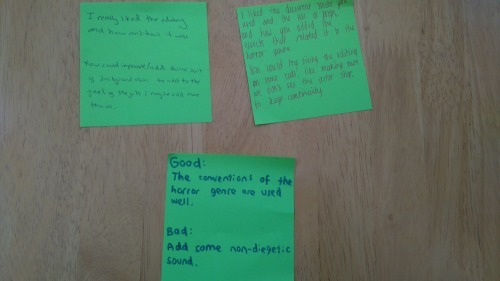 I really liked the editing
and how ambitious it was
You could improve/add some sort
of background music to add to the
I liked the different
used and the use of props
and how you edited the
which related it to the
horror genre.
You could try fixing the editing
on some cuts, like making sure
we can't see the
to keep continuity
Good:
The conventions of the
horror genre are used
well.
Bad:
Add some non-diegetic
sound.